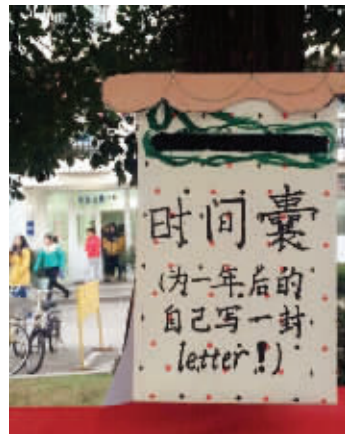 时间囊
(为一年后的
自己写一封
letter!)